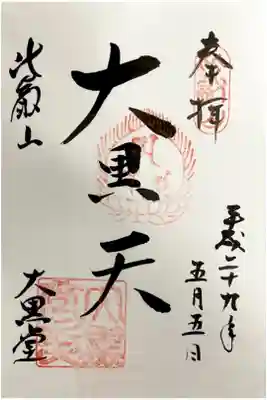 奉拝
平成二十九年
五月五日
大黒天
比叡山
大黒堂